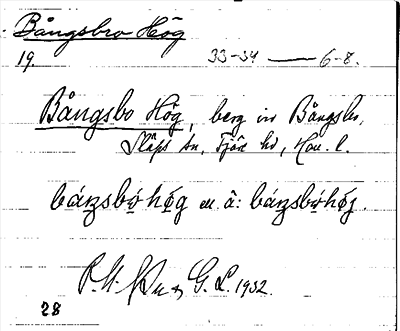 Bångsbro Hög
19. 33-34 — 6-8.
Bångsbo Hög, berg in Bångsbo,
Släps sn, Fjäre hd, Hall. l.
båŋsbóhǿg el. å: båŋsbóhǿj.
G. L. 1932.
28